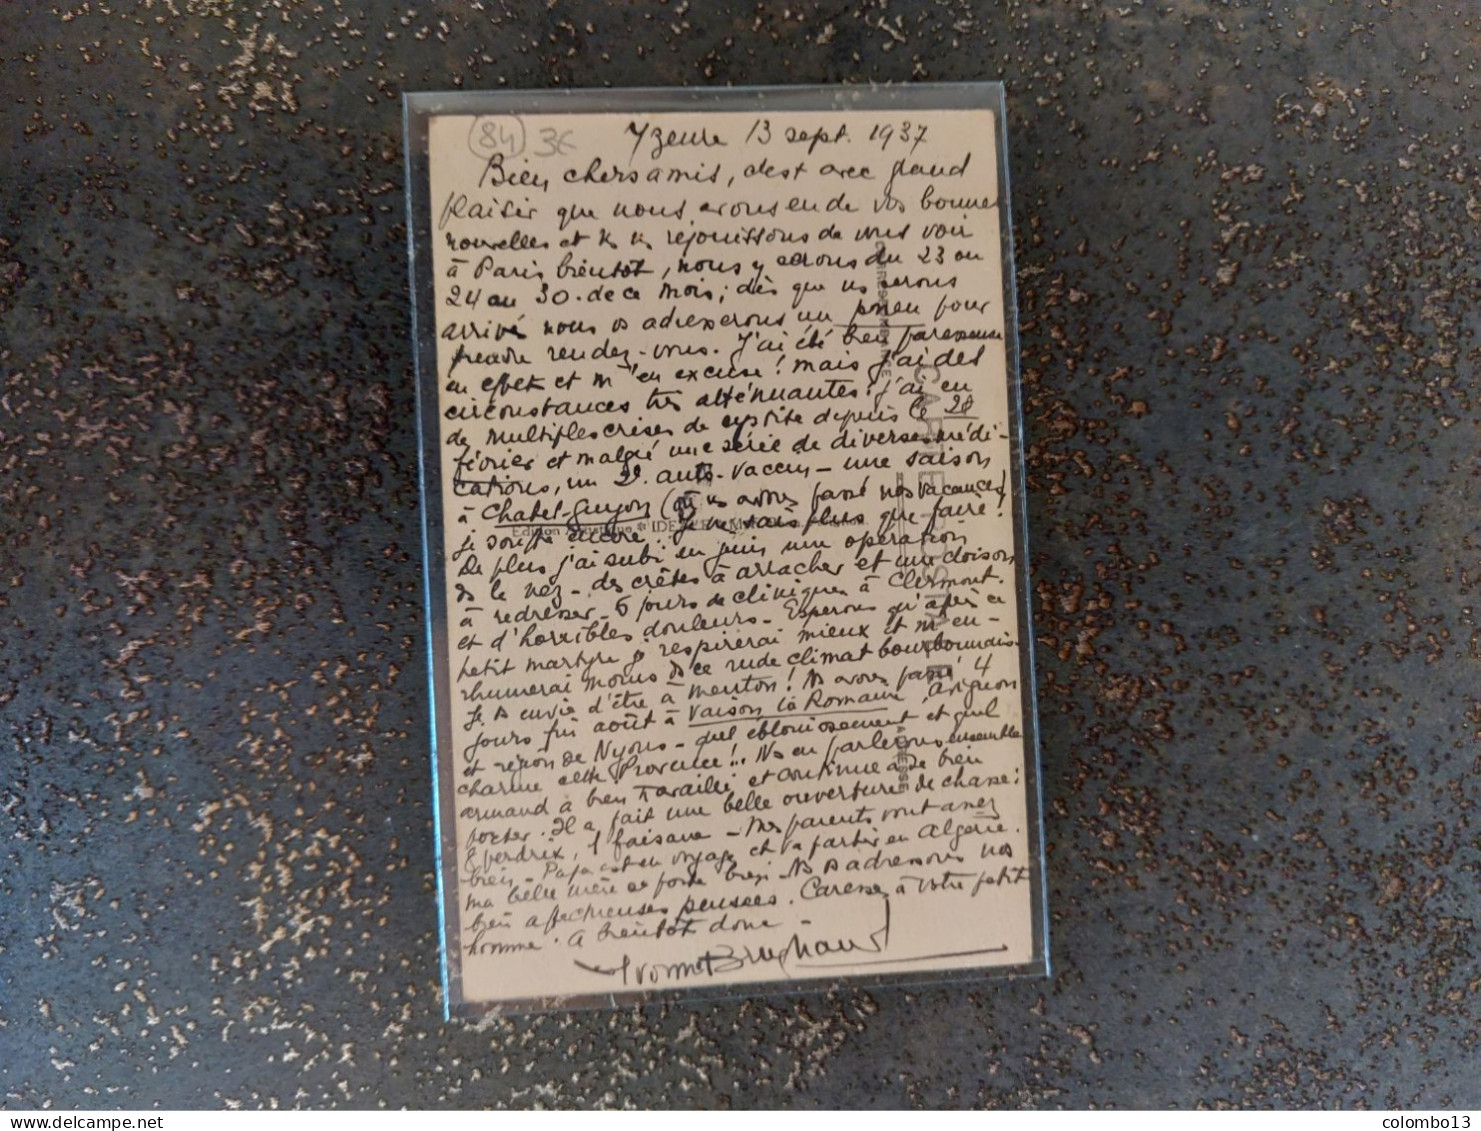 84 3€
Yzeure 13 sept. 1937
Bien chers amis, c'est avec grand
plaisir que nous avons eu de vos bonnes
nouvelles et ns ns réjouissons de vous voir
à Paris bientôt, nous y serons du 23 ou
24 au 30 de ce mois; dès que ns serons
arrivé nous vs adresserons un pneu pour
prendre rendez-vous. J'ai été bien paresseuse
en effet et m'en excuse! mais j'ai des
circonstances très atténuantes: j'ai eu
de multiples crises de cystite depuis le 28
février et malgré une série de diverses médi-
cations, un 2e. auto-vaccin - une saison
à Chatel-Guyon (où ns avons passé nos vacances)
je souffre encore. Je ne sais plus que faire!
De plus j'ai subi en juin une opération
ds le nez - des crêtes à arracher et une cloison
à redresser - 6 jours de clinique à Clermont.
et d'horribles douleurs - Espérons qu'après ce
petit martyre je respirerai mieux et m'en-
rhumerai moins ds ce rude climat bourbonnais.
Je envie d'être à menton! Ns avons passé 4
jours fin août à Vaison la Romaine, Avignon
et région de Nyons - quel éblouissement et quel
charme cette Provence!!. Ns en parlerons ensemble
armand a bien travaillé et continue à se bien
porter. Il a fait une belle ouverture de chasse:
8 perdrix, 1 faisane - Mes parents vont assez
bien - Papa est en voyage et va partir en Algérie.
ma belle mère se porte bien - Ns vs adressons nos
bien affectueuses pensées. Caresses à votre petit
homme. A bientôt donc -
Yvonne
CORRESPONDANCE
CARTE POSTALE
ADRESSE
colombo13